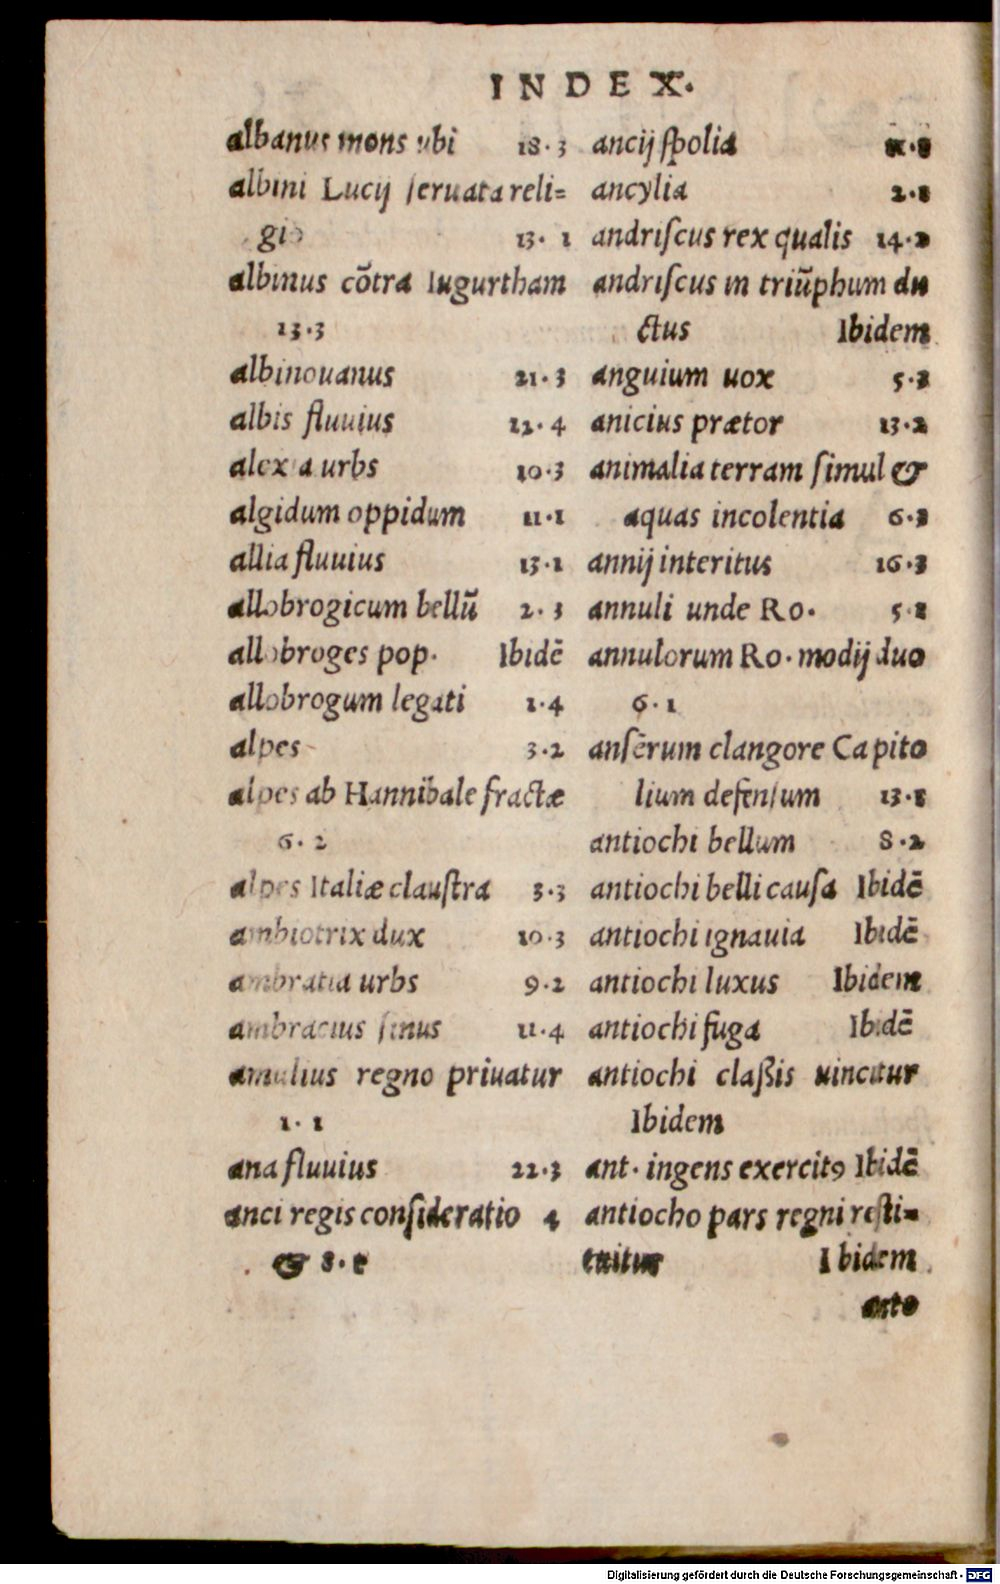 INDEX.
albanus mons ubi 18.3
albini Lucij ſeruata reli=
gio 13.1
albinus cōtra Iugurtham
13.3
albinouanus 21.3
albis fluuius 22.4
alexia urbs 10.3
algidum oppidum 11.1
allia fluuius 13.1
allobrogicum bellū 2.3
allobroges pop. Ibidē
allobrogum legati 1.4
alpes 3.2
alpes ab Hannibale fractæ
6.2
alpes Italiæ clauſtra 3.3
ambiotrix dux 10.3
ambratia urbs 9.2
ambracius ſinus 11.4
amulius regno priuatur
1.1
ana fluuius 22.3
anci regis conſideratio 4
& 8.
ancij ſpolia
ancylia 2.
andriſcus rex qualis 14.2
andriſcus in triūphum du
ctus Ibidem
anguium uox 5.
anicius prætor 13.2
animalia terram ſimul &
aquas incolentia 6.
annij interitus 16.
annuli unde Ro. 5.
annulorum Ro. modij duo
6.1
anſerum clangore Capito
lium defenſum 13.
antiochi bellum 8.2
antiochi belli cauſa Ibidē
antiochi ignauia Ibidē
antiochi luxus Ibidem
antiochi fuga Ibidē
antiochi claßis uincitur
Ibidem
ant. ingens exercitꝰ Ibidē
antiocho pars regni reſti=
tuitur Ibidem
Digitalisierung gefördert durch die Deutsche Forschungsgemeinschaft - DFG